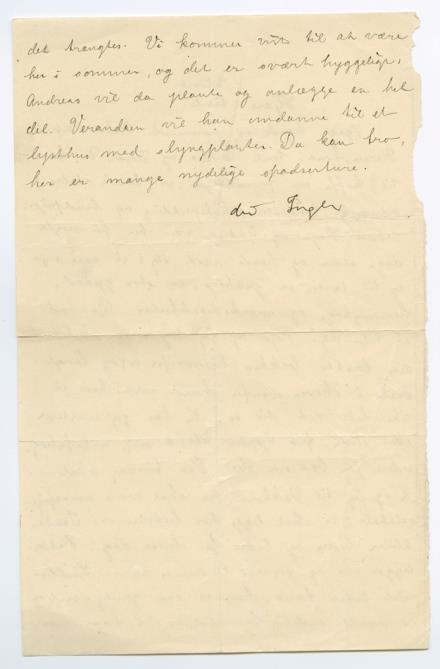 det trængtes. Vi kommer vist til at være
her i sommer, og det er svært hyggeligt,
Andreas vil da plante og anlægge en hel
del. Verandaen vil han omdanne til et
lysthus med slyngplanter. Du kan tro,
her er mange nydelige spadserture.
din Inger